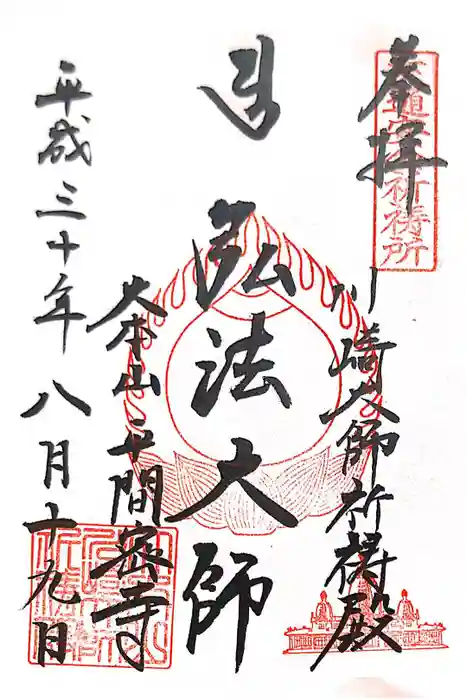 奉拝
交通安全祈祷所
川崎大師祈祷殿
弘法大師
大本山平間密寺
平成三十年八月十九日